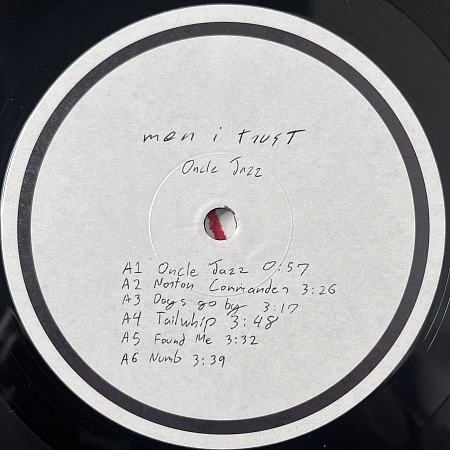 men i trust
Oncle Jazz
A1 Oncle Jazz 0:57
A2 Norton Commander 3:26
A3 Days go by 3:17
A4 Tailwhip 3:48
A5 Found Me 3:32
A6 Numb 3:39